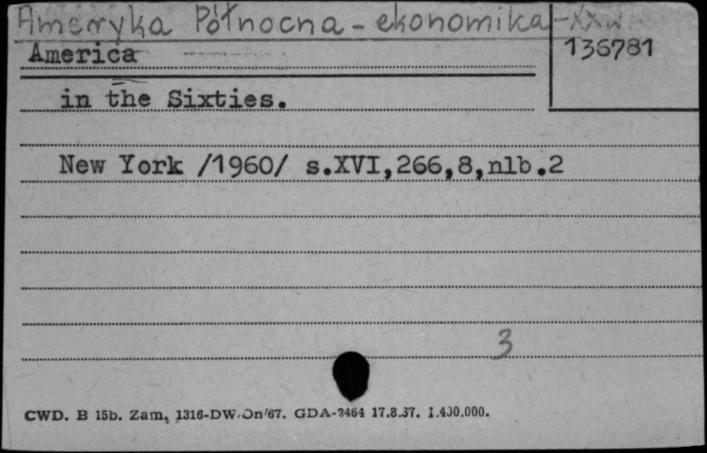 Ameryka Północna - ekonomika - XX w
136781
America
in the Sixties.
New York /1960/ s.XVI,266,8,nlb.2
3
CWD. B 15b. Zam, 1316-DW/On/67. GDA-2464 17.8.37. 1.400.000.